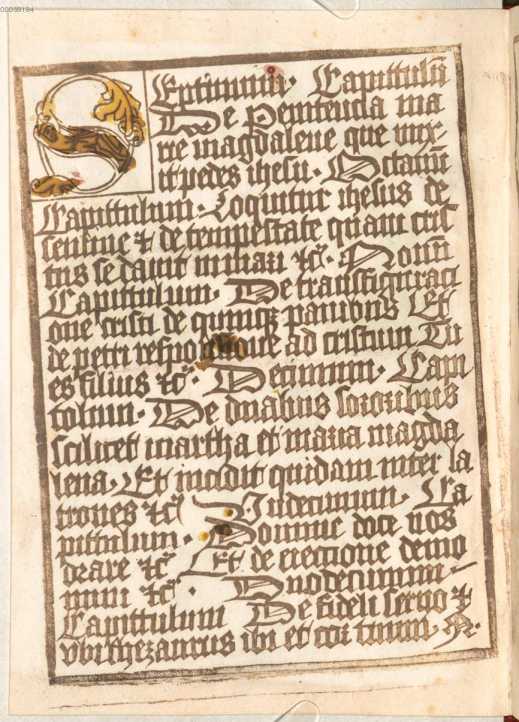 00039184
Septimum. Capittulū
De penitencia ma
rie magdalene que unx-
it pedes ihesu. Octauū
Capittulum. Loquitur ihesus de
semine ⁊ de tempestate quam cris
tus sedauit in mari ⁊c̄. Nonū
Capittulum. De transfiguraci
one cristi de quinqȝ panibus Et
de petri responsione ad cristum Tu
es filius ⁊c̄. Decimum. Capi
tolum. De duabus sororibus
scilicet martha et maria magda
lena, Et incidit quidam inter la
trones ⁊c̄ Vndecimum. Ca
pittulum. Domine doce nos
orare ⁊c̄ Et de ereccione demo
num ⁊c̄. Duodecimum
Capittulum De fideli seruo ⁊
vbi thezaurus ibi et cor tuum,